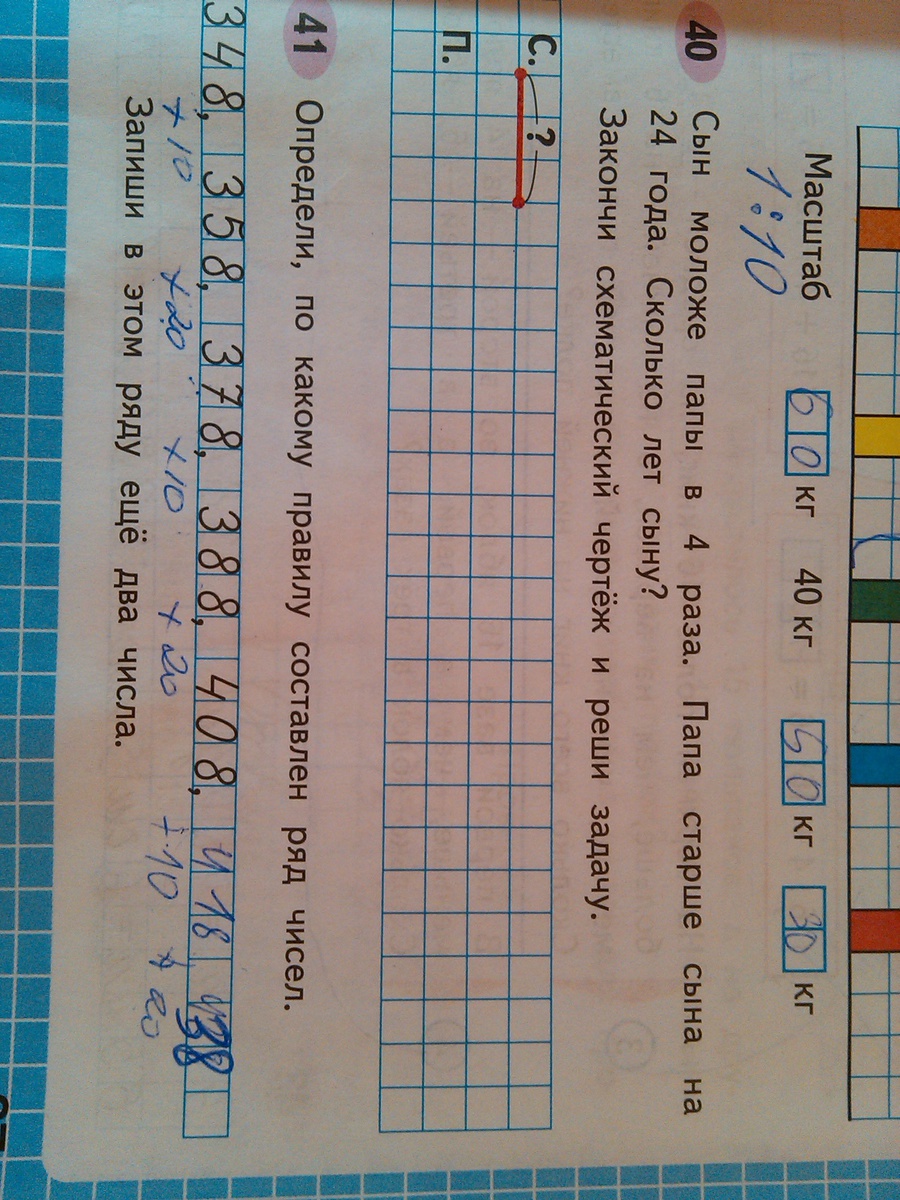 Масштаб
1:10
60 кг 40 кг 50 кг 30 кг
40 Сын моложе папы в 4 раза. Папа старше сына на
24 года. Сколько лет сыну?
Закончи схематический чертёж и реши задачу.
?
С.
П.
41 Определи, по какому правилу составлен ряд чисел.
348, 358, 378, 388, 408, 418 438
+10 +20 +10 +20 +10 +20
Запиши в этом ряду ещё два числа.